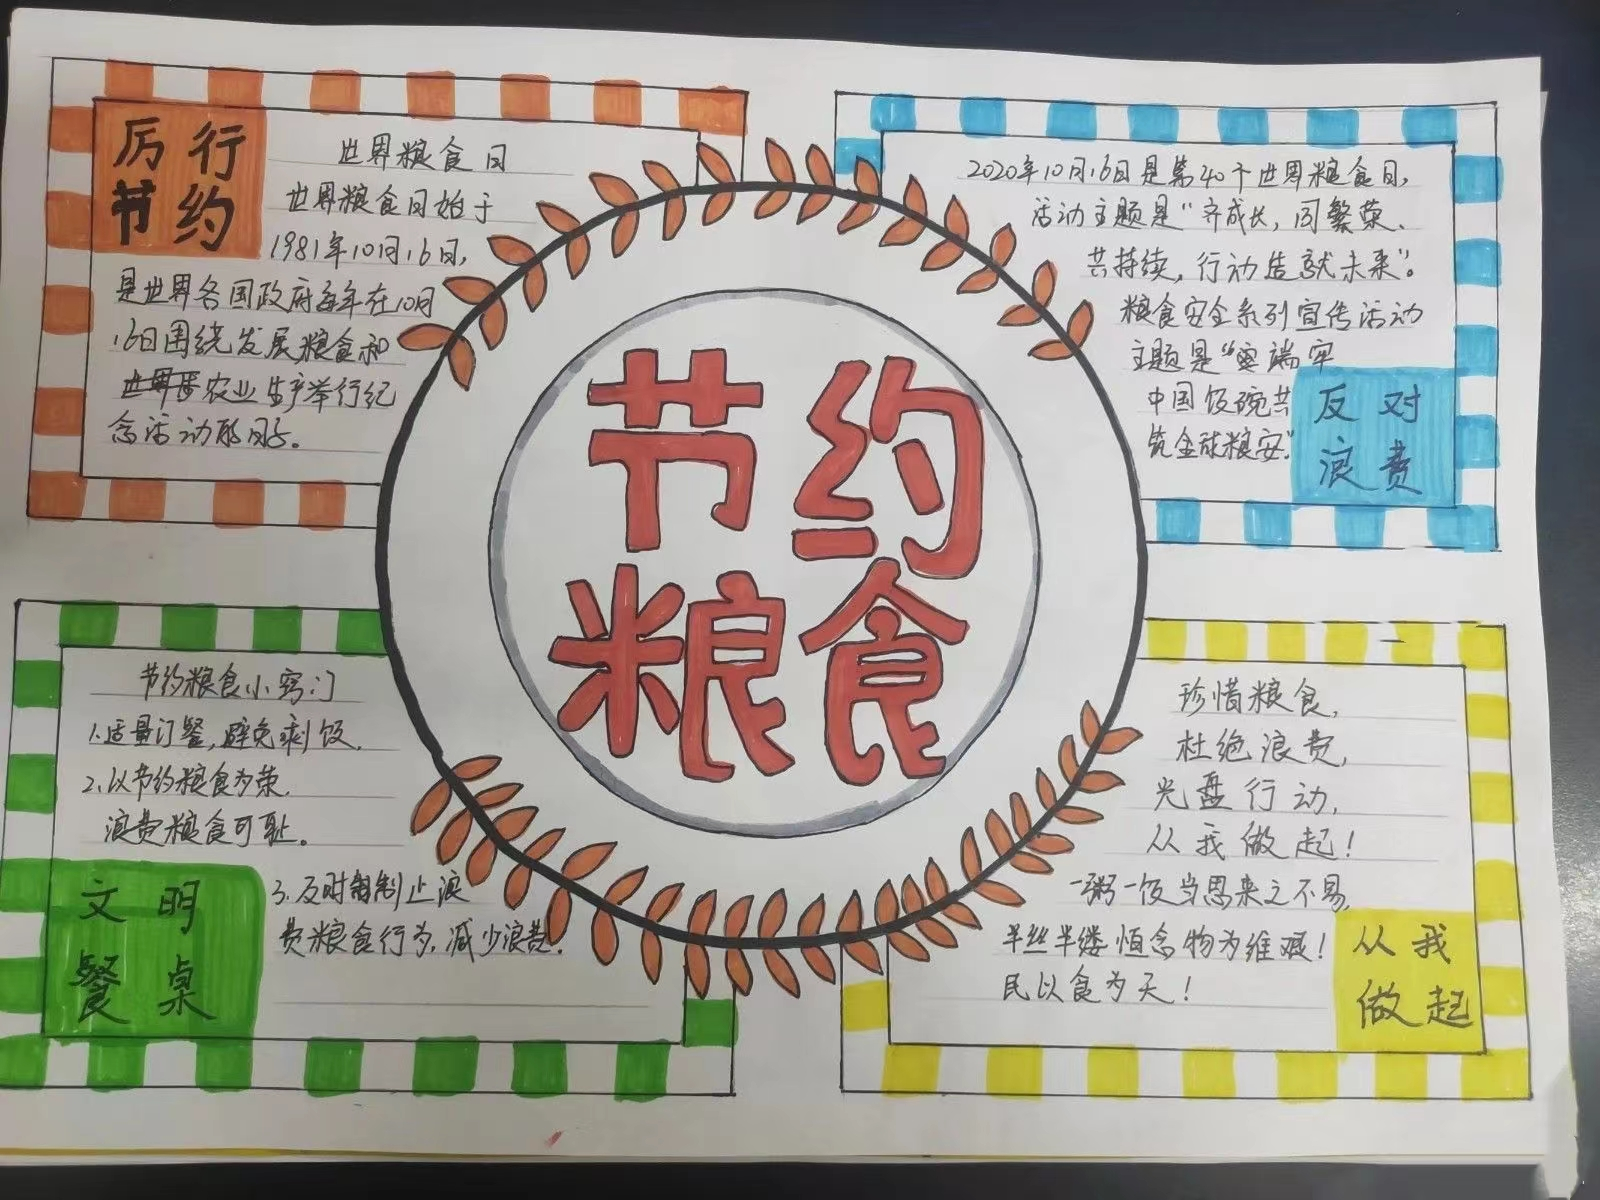 厉行
节约
世界粮食日
世界粮食日始于
1981年10月16日,
是世界各国政府每年在10月
16日围绕发展粮食和
农业生产举行纪
念活动的日子。
2020年10月16日是第40个世界粮食日,
活动主题是“齐成长,同繁荣、
共持续,行动造就未来”。
粮食安全系列宣传活动
主题是“端牢
中国饭碗共
筑全球粮安”
反对
浪费
节约
粮食
节约粮食小窍门
1.适量订餐,避免剩饭.
2.以节约粮食为荣.
浪费粮食可耻。
3.及时制止浪
费粮食行为,减少浪费.
文明
餐桌
珍惜粮食,
杜绝浪费,
光盘行动,
从我做起!
一粥一饭当思来之不易,
半丝半缕恒念物为维艰!
民以食为天!
从我
做起